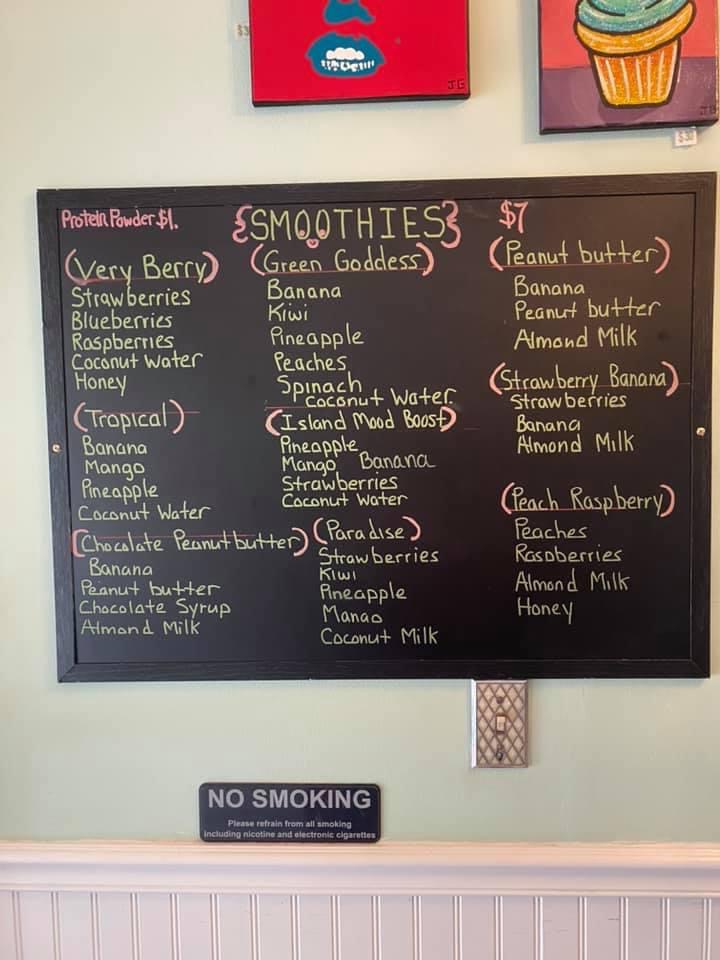 JG
JB
$30
Protein Powder $1.
{SMOOTHIES}
$7
(Very Berry)
Strawberries
Blueberries
Raspberries
Coconut Water
Honey
(Tropical)
Banana
Mango
Pineapple
Coconut Water
(Chocolate Peanut butter)
Banana
Peanut butter
Chocolate Syrup
Almond Milk
(Green Goddess)
Banana
Kiwi
Pineapple
Peaches
Spinach
Coconut Water
(Island Mood Boost)
Pineapple
Mango Banana
Strawberries
Coconut Water
(Paradise)
Strawberries
Kiwi
Pineapple
Mango
Coconut Milk
(Peanut butter)
Banana
Peanut butter
Almond Milk
(Strawberry Banana)
Strawberries
Banana
Almond Milk
(Peach Raspberry)
Peaches
Raspberries
Almond Milk
Honey
NO SMOKING
Please refrain from all smoking
including nicotine and electronic cigarettes